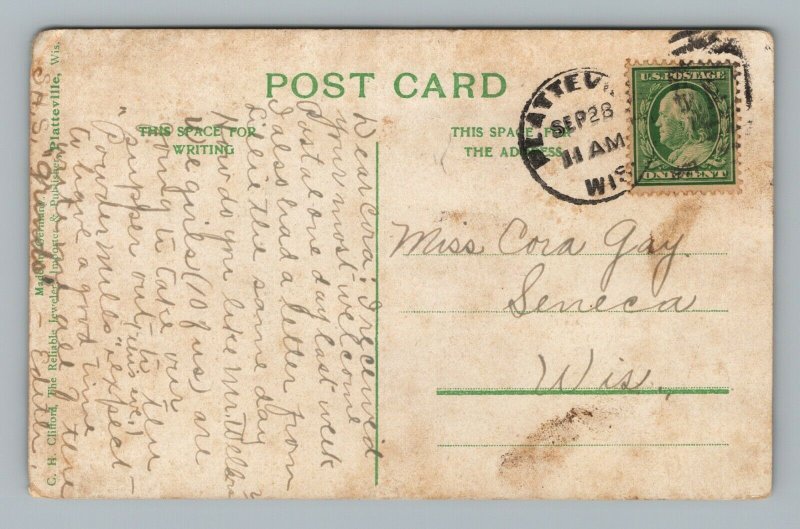 POST CARD
THIS SPACE FOR
WRITING
THIS SPACE FOR
THE ADDRESS
PLATTEVI
SEP 28
11 AM
WIS
U.S. POSTAGE
ONE CENT
Miss Cora Gay.
Seneca
Wis.,
Dear Cora; I received
your most welcome
Postal one day last week
I also had a letter from
Lillie the same day
How do you like Mr.
We girls (10 of us) are
going to take our
supper out to the
"Powder Mills" expect
to have a good time
Edith.
C. H. Clifford, The Reliable Jeweler, Importer & Publisher, Platteville, Wis.
Made in Germany.